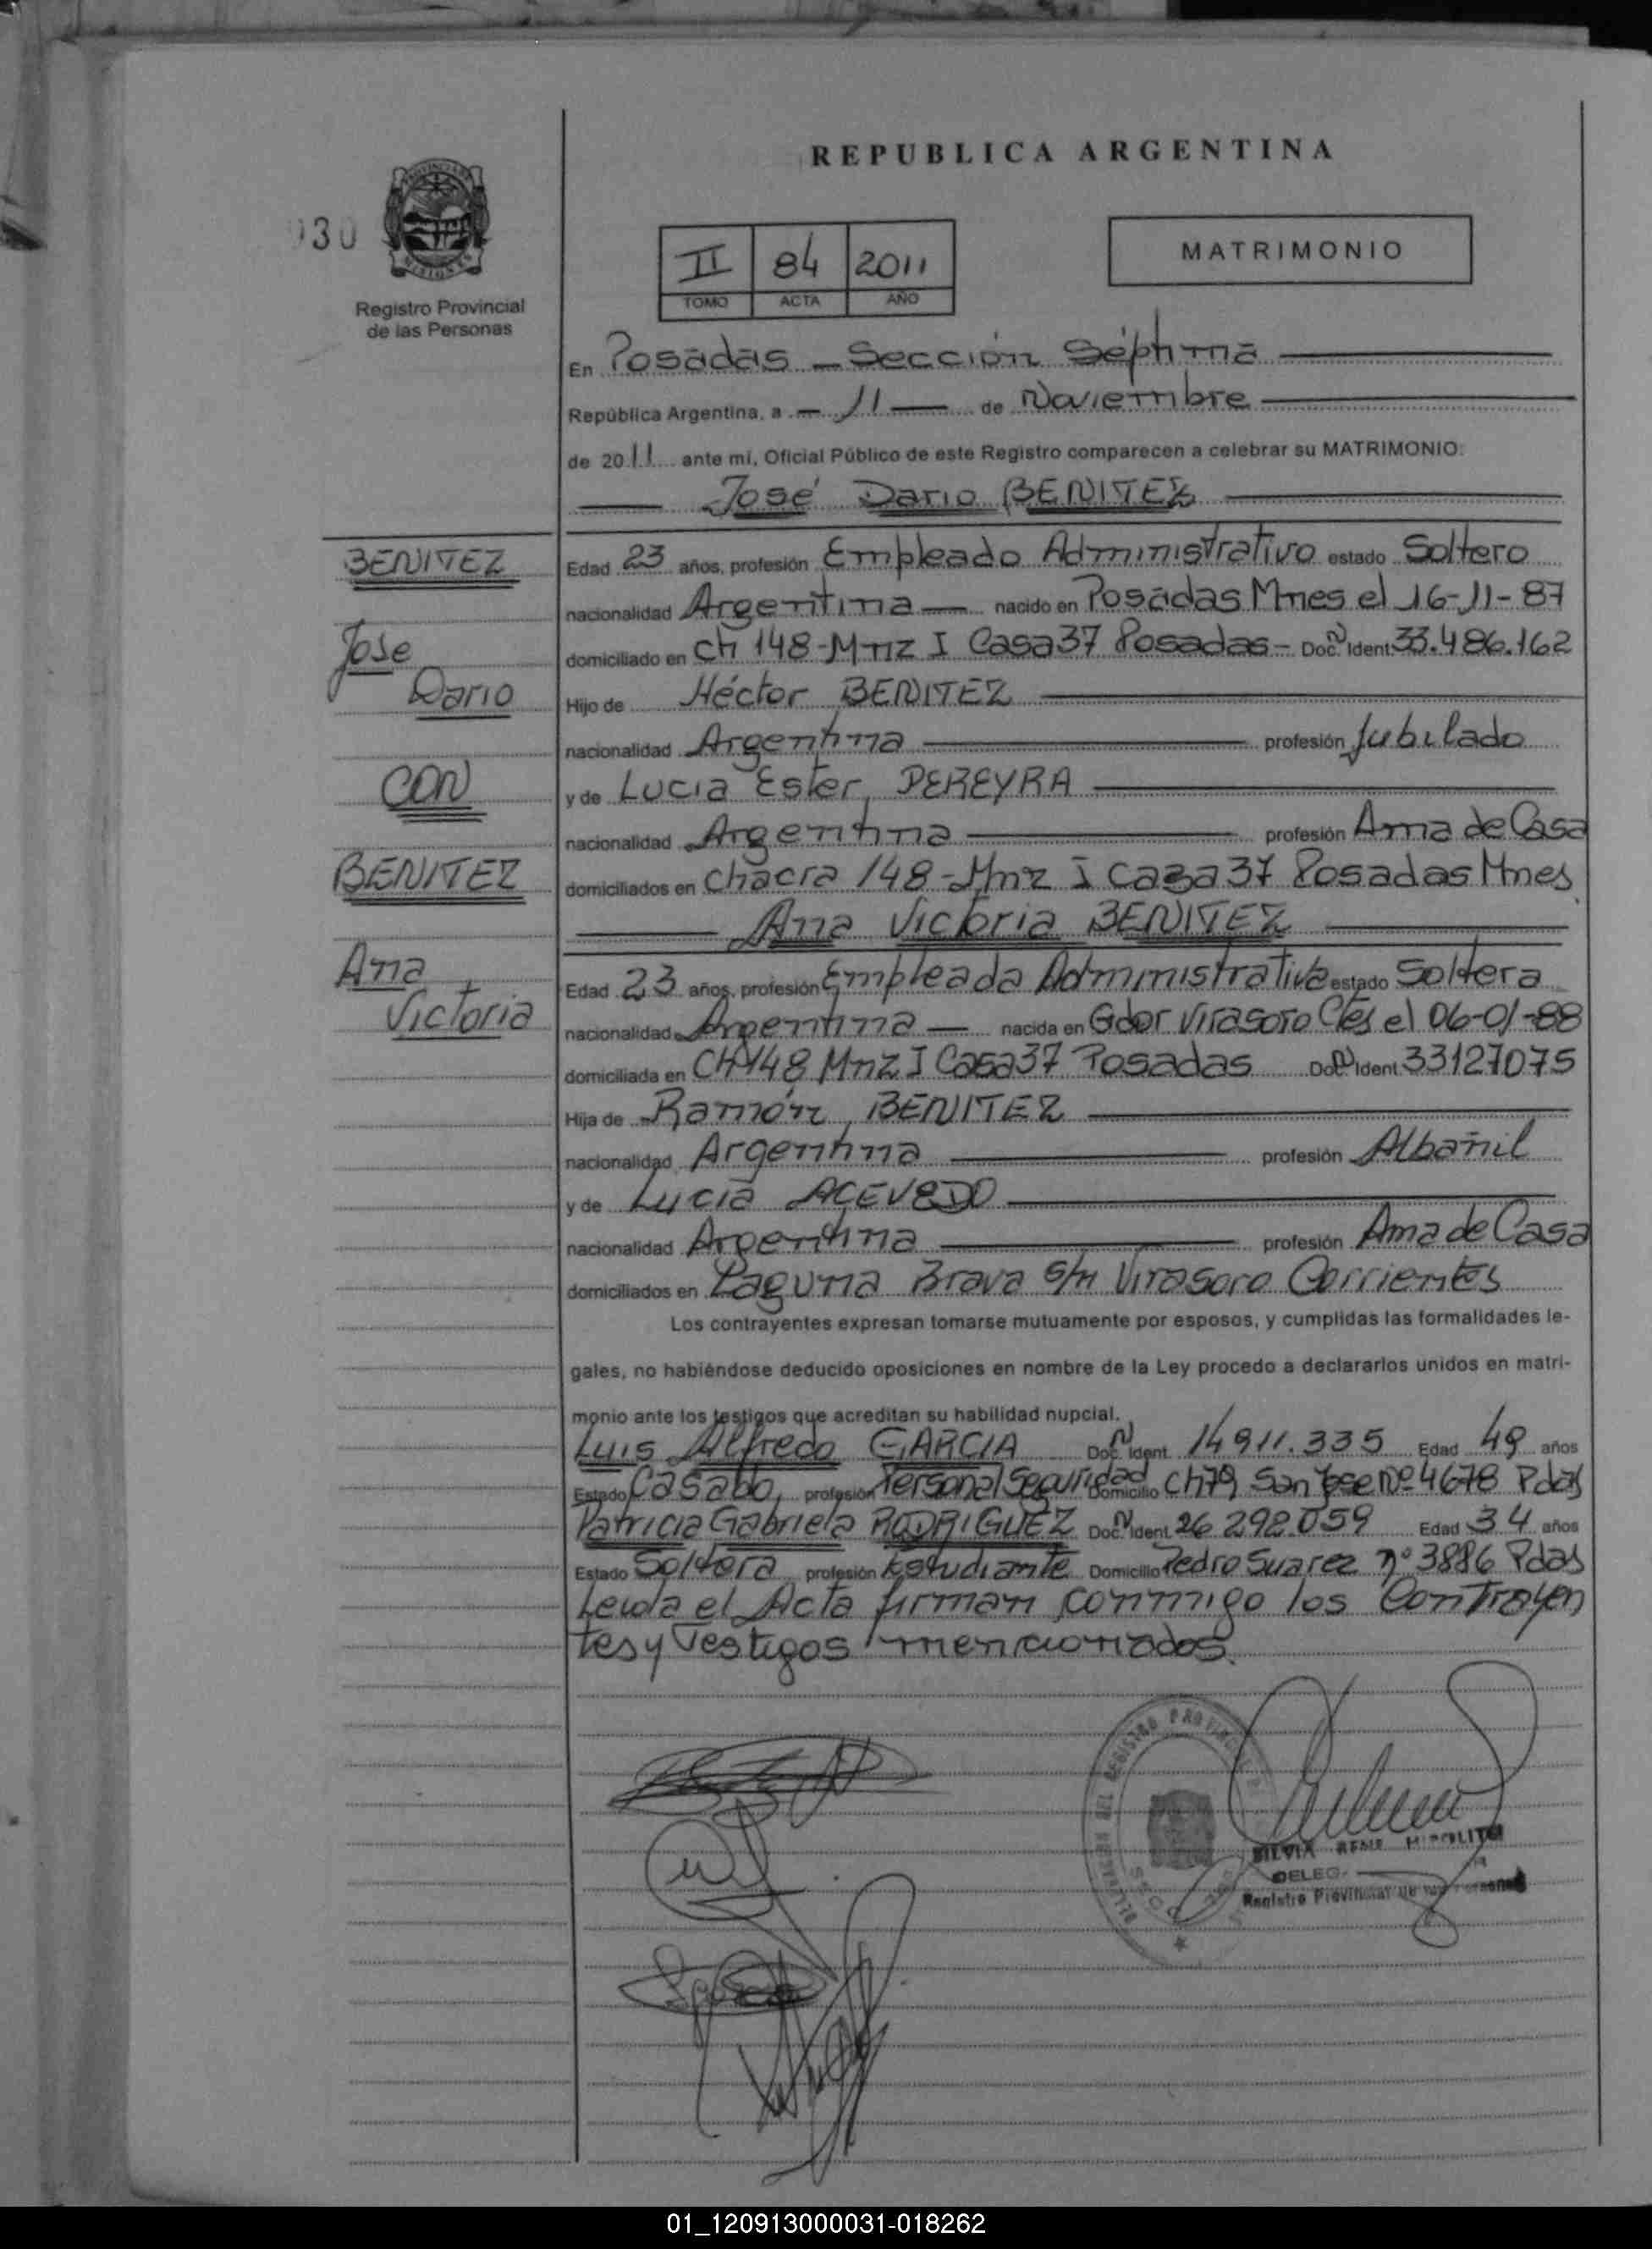 REPUBLICA ARGENTINA
030
MATRIMONIO
II 84 2011
TOMO ACTA AÑO
Registro Provincial
de las Personas
En Posadas - Sección Séptima
República Argentina, a - 11 - de Noviembre
de 2011 ante mi, Oficial Público de este Registro comparecen a celebrar su MATRIMONIO:
José Dario BENITEZ
BENITEZ
Jose
Dario
CON
BENITEZ
Ana
Victoria
Edad 23 años, profesión Empleado Administrativo estado Soltero
nacionalidad Argentina - nacido en Posadas Mnes el 16-11-87
domiciliado en CH 148-Mnz I Casa 37 Posadas - Doc. N Ident. 33.486.162
Hijo de Héctor BENITEZ
nacionalidad Argentina profesión Jubilado
y de Lucia Ester PEREYRA
nacionalidad Argentina profesión Ama de Casa
domiciliados en Chacra 148-Mnz I casa 37 Posadas Mnes
Ana Victoria BENITEZ
Edad 23 años, profesión Empleada Administrativa estado Soltera
nacionalidad Argentina - nacida en Gdor Virasoro Ctes el 06-01-88
domiciliada en CH 148 Mnz I Casa 37 Posadas Doc. N Ident 33127075
Hija de Ramón BENITEZ
nacionalidad Argentina profesión Albañil
y de Lucia ACEVEDO
nacionalidad Argentina profesión Ama de Casa
domiciliados en Laguna Brava s/n Virasoro Corrientes
Los contrayentes expresan tomarse mutuamente por esposos, y cumplidas las formalidades le-
gales, no habiéndose deducido oposiciones en nombre de la Ley procedo a declararlos unidos en matri-
monio ante los testigos que acreditan su habilidad nupcial.
Luis Alfredo GARCIA Doc. N Ident. 14911.335 Edad 49 años
Estado Casado, profesión Personal Seguridad Domicilio CH 79 San Jose Nº 4678 Pdas
Patricia Gabriela RODRIGUEZ Doc. N Ident. 26 292.059 Edad 34 años
Estado Soltera profesión Estudiante Domicilio Pedro Suarez nº 3886 Pdas
Leida el Acta firman conmigo los Contrayen
tes y Testigos mencionados.
SILVIA RENE HIPOLITO
DELEG.
Registro Provincial de las Personas
01_120913000031-018262